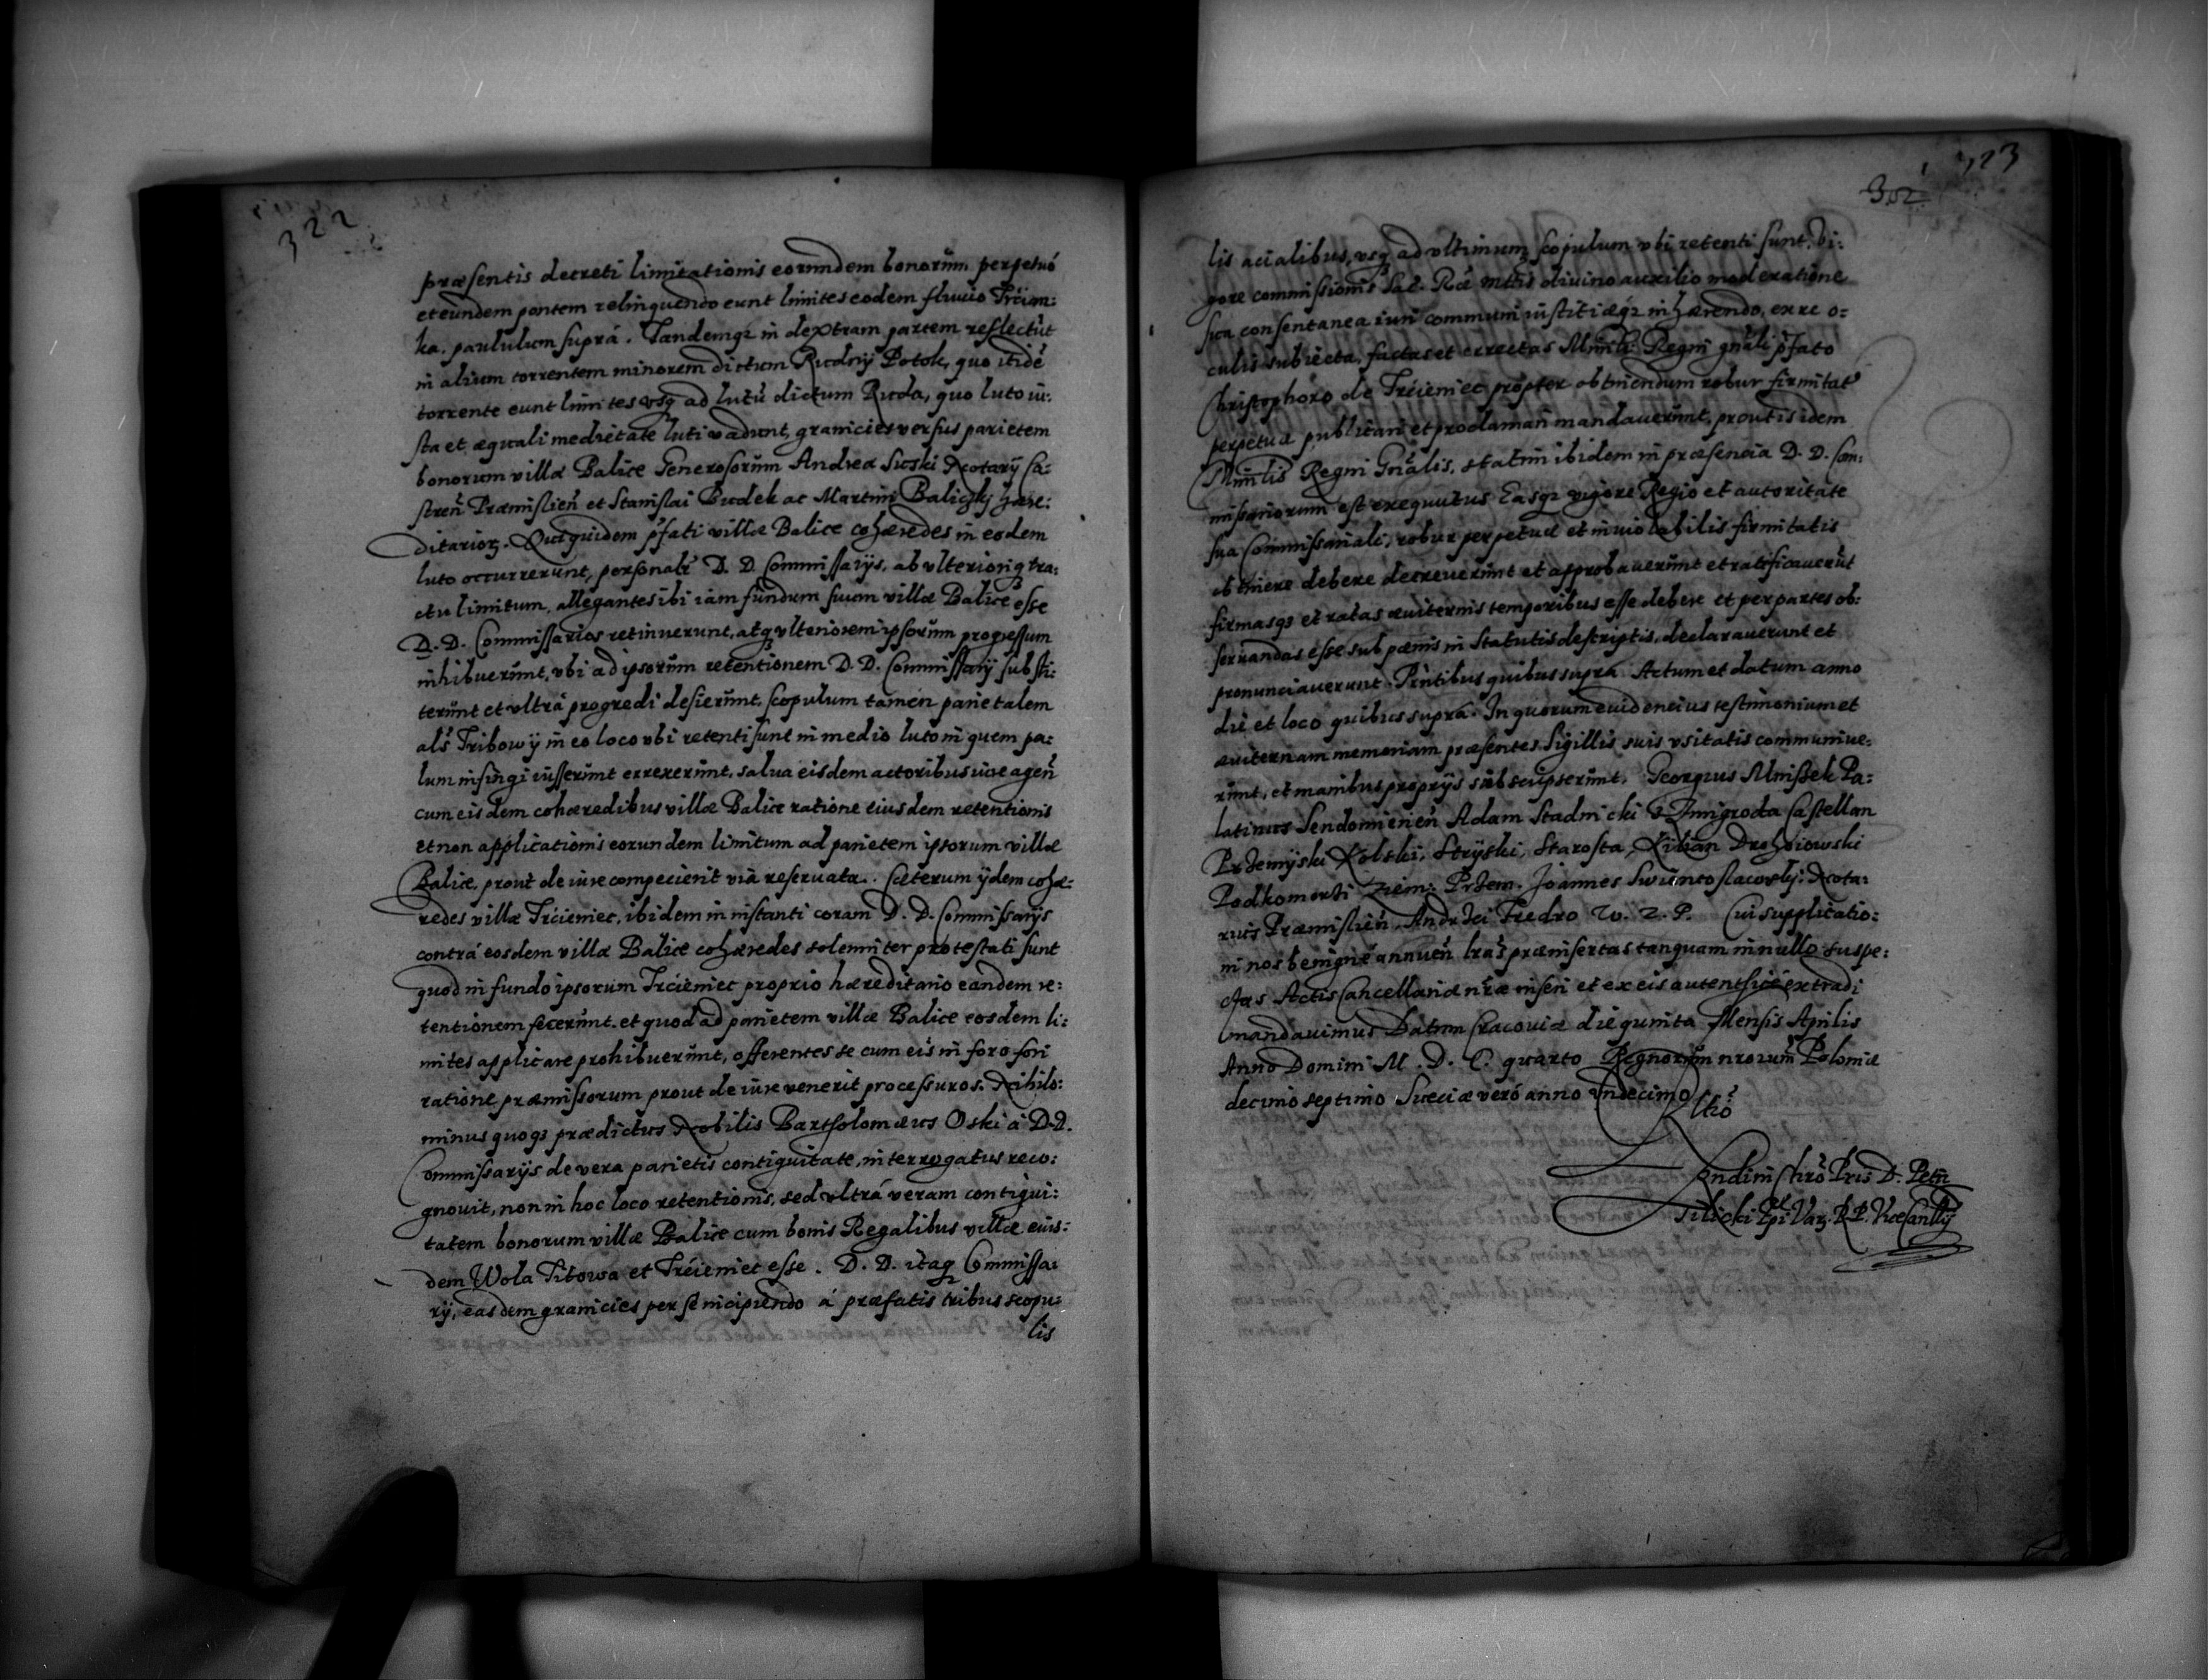 322
præsentis decreti limitationis eorundem bonorum perpetuó
et eundem pontem relinquendo eunt limites eodem fluuio Trċian:
ka. paululum suprá. Tandemq; in dextram partem reflectūt
in alium torrentem minorem dictum Rudny Potok, quo itidē
torrente eunt limites vsq; ad lutū dictum Ruda, quo luto iu:
sta et æquali medietate luti vadunt, granicies versus parietem
bonorum villæ Balice Generosorum Andreæ Notarÿ Ca:
streñ Præmislieñ et Stanislai Budek ac Martini Baliczkj hære:
ditarior̨. Qui quidem pfati villæ Balice cohæredes in eodem
luto occurrerunt, personalr D. D. Commissarÿs, ab vlteriori tra:
ctu limitum, allegantes ibi iam fundum suum villæ Balice esse
D. D. Commissarios retinuerunt, atq; vlteriorem ipsorum progressum
inhibuerunt, vbi ad ipsorum retentionem D. D. Commissarÿ substi:
terunt et vltrá progredi desierunt, scopulum tamen parietalem
als Tribowÿ in eo loco vbi retenti sunt in medio luto in quem pa:
lum infingi iusserunt erexerunt, salua eisdem actoribus iure ageñ
cum eisdem cohæredibus villæ Balice ratione eiusdem retentionis
et non applicationis eorundem limitum ad parietem ipsorum villæ
Balice, prout de iure compecierit viâ reseruata. Cæterum ÿdem cohæ:
redes villæ Trċieniec, ibidem in instanti coram D. D. Commissarÿs
contrá eosdem villæ Balice cohæredes solenniter protestati sunt
quod in fundo ipsorum Trċieniec proprio hæreditario eandem re:
tentionem fecerunt. et quod ad parietem villæ Balice eosdem li:
mites applicare prohibuerunt, offerentes se cum eis in foro fori
ratione præmissorum prout de iure venerit processuros. Nihilo:
minus quoq; prædictus Nobilis Bartholomæus Oski á D. D.
Commissarÿs de vera parietis contiguitate, interrogatus reco:
gnouit, non in hoc loco retentionis, sed vltrá veram contigui:
tatem bonorum villæ Balice cum bonis Regalibus villæ eius:
dem Wola Titowa et Trċieniec esse. D. D. itaq; Commissa:
rÿ, easdem granicies per se incipiendo á præfatis tribus scopu:
lis
323
lis acialibus, vsq; ad vltimum scopulum vbi retenti sunt, vi:
gore commissionis Sac. Ræ mttis diuino auxilio moderatione
sua consentanea iuri communi iustitiæq; inhærendo, ex re o:
culis subiecta, factas et erectas Regni gnali pfato
Christophoro de Trċieniec propter obtinendum robur firmitat
perpetuæ publicari et proclamari mandauerunt, prout is idem
Regni Gñalis, statim ibidem in præsencia D. D. Com:
missariorum est exequutus Easq; vigore Regio et autoritate
sua Commissariali, robur perpetuæ et inuiolabilis firmitatis
obtinere debere decreuerunt et approbauerunt et ratificauerūt
firmasq; et ratas æuiternis temporibus esse debere et per partes ob:
seruandas esse sub pænis in Statutis descriptis, declarauerunt et
pronunciauerunt. Pñtibus quibus supra. Actum et datum anno
die et loco quibus supra. In quorum euidencius testimonium et
æuiternam memoriam præsentes Sigillis suis vsitatis communiue:
runt, et manibus proprÿs subscripserunt. Georgius Mnißek Pa:
latinus Sendomirieñ Adam Stadnicki z Zmigroda Castellan
Przemÿski Kolski, Starosta, Kilian Drohoiowski
Podkomorzi Ziem: Przem. Joannes Nota:
rius Præmislieñ, Andrzei Fredro W. Z. P. Cui supplicatio:
ni nos benigné annueñ lras præinsertas tanquam in nullo suspe:
ctas Actis Cancellariæ nræ inseri et ex eis autenthicé extradi
mandauimus Datum Cracouiæ die quinta Mensis Aprilis
Anno Domini M. D. C. quarto Regnorum nrorum Poloniæ
decimo septimo Sueciæ veró anno vndecimo
Pris D. Petri
Tilicki Epi Var. R. P. ViceCanllÿ